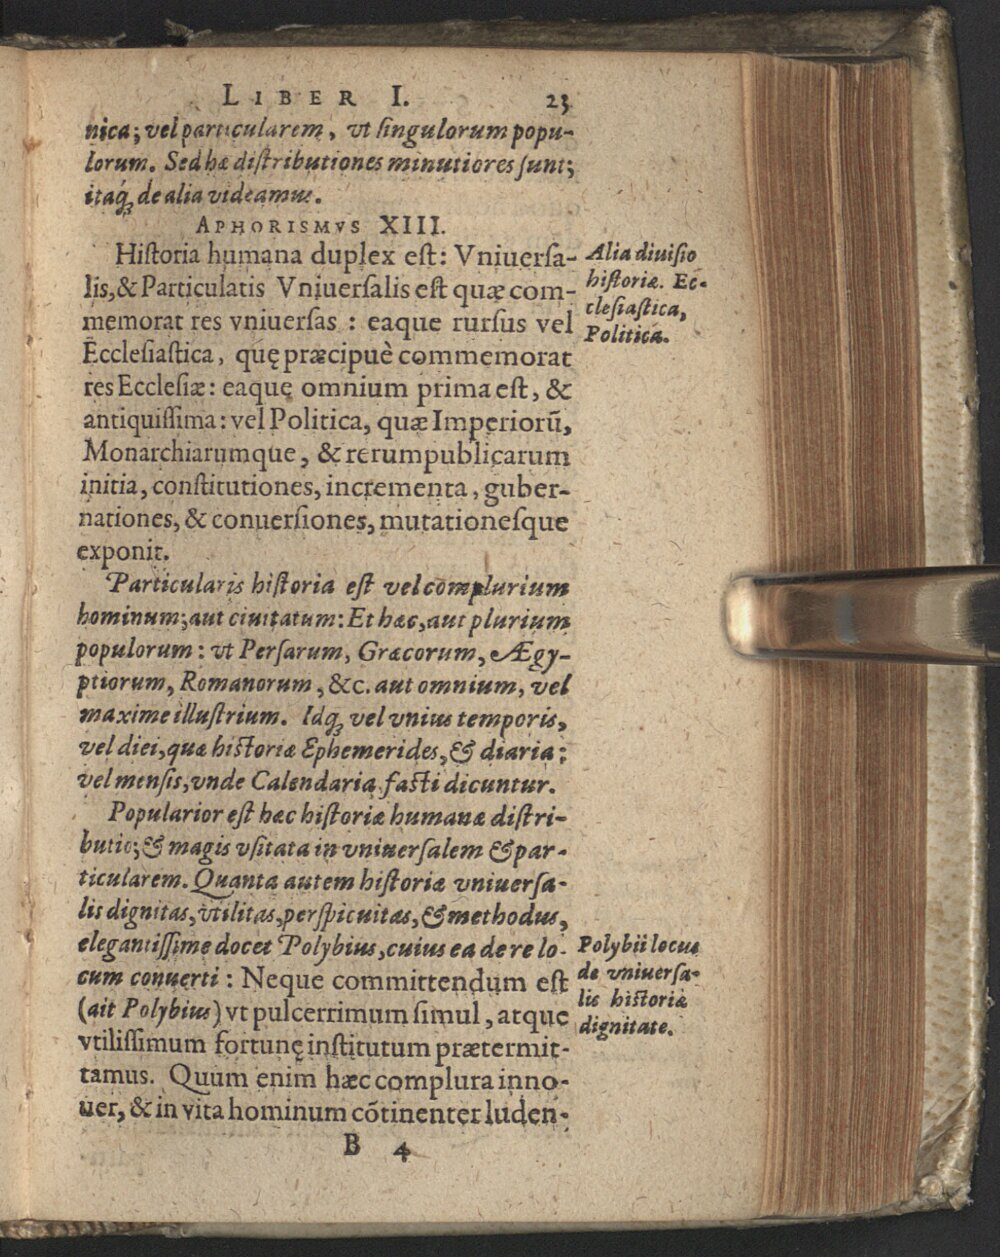 LIBER I. 23
nica; vel particularem, vt ſingulorum popu-
lorum. Sed hæ diſtributiones minutiores ſunt;
itaq́; de alia videamus.
APHORISMVS XIII.
Hiſtoria humana duplex eſt: Vniuerſa-
lis, & Particularis Vniuerſalis eſt quæ com-
memorat res vniuerſas : eaque rurſus vel
Eccleſiaſtica, quę præcipuè commemorat
res Eccleſiæ: eaquę omnium prima eſt, &
antiquiſſima: vel Politica, quæ Imperiorũ,
Monarchiarumque, & rerumpublicarum
initia, conſtitutiones, incrementa, guber-
nationes, & conuerſiones, mutationeſque
exponit.
Alia diuiſio
hiſtoriæ. Ec-
cleſiaſtica,
Politica.
Particularis hiſtoria eſt vel complurium
hominum; aut ciuitatum: Et hæc, aut plurium
populorum: vt Perſarum, Græcorum, Ægy-
ptiorum, Romanorum, &c. aut omnium, vel
maxime illuſtrium. Idq́; vel vnius temporis,
vel diei, quæ hiſtoriæ Ephemerides, & diaria;
vel menſis, vnde Calendaria faſti dicuntur.
Popularior eſt hæc hiſtoriæ humanæ diſtri-
butio; & magis vſitata in vniuerſalem & par-
ticularem. Quanta autem hiſtoriæ vniuerſa-
lis dignitas, vtilitas, perſpicuitas, & methodus,
elegantiſſime docet Polybius, cuius ea de re lo-
cum conuerti : Neque committendum eſt
(ait Polybius) vt pulcerrimum ſimul, atque
vtiliſſimum fortunę inſtitutum prætermit-
tamus. Quum enim hæc complura inno-
uet, & in vita hominum cõtinenter luden-
Polybii locus
de vniuerſa-
lis hiſtoriæ
dignitate.
B 4